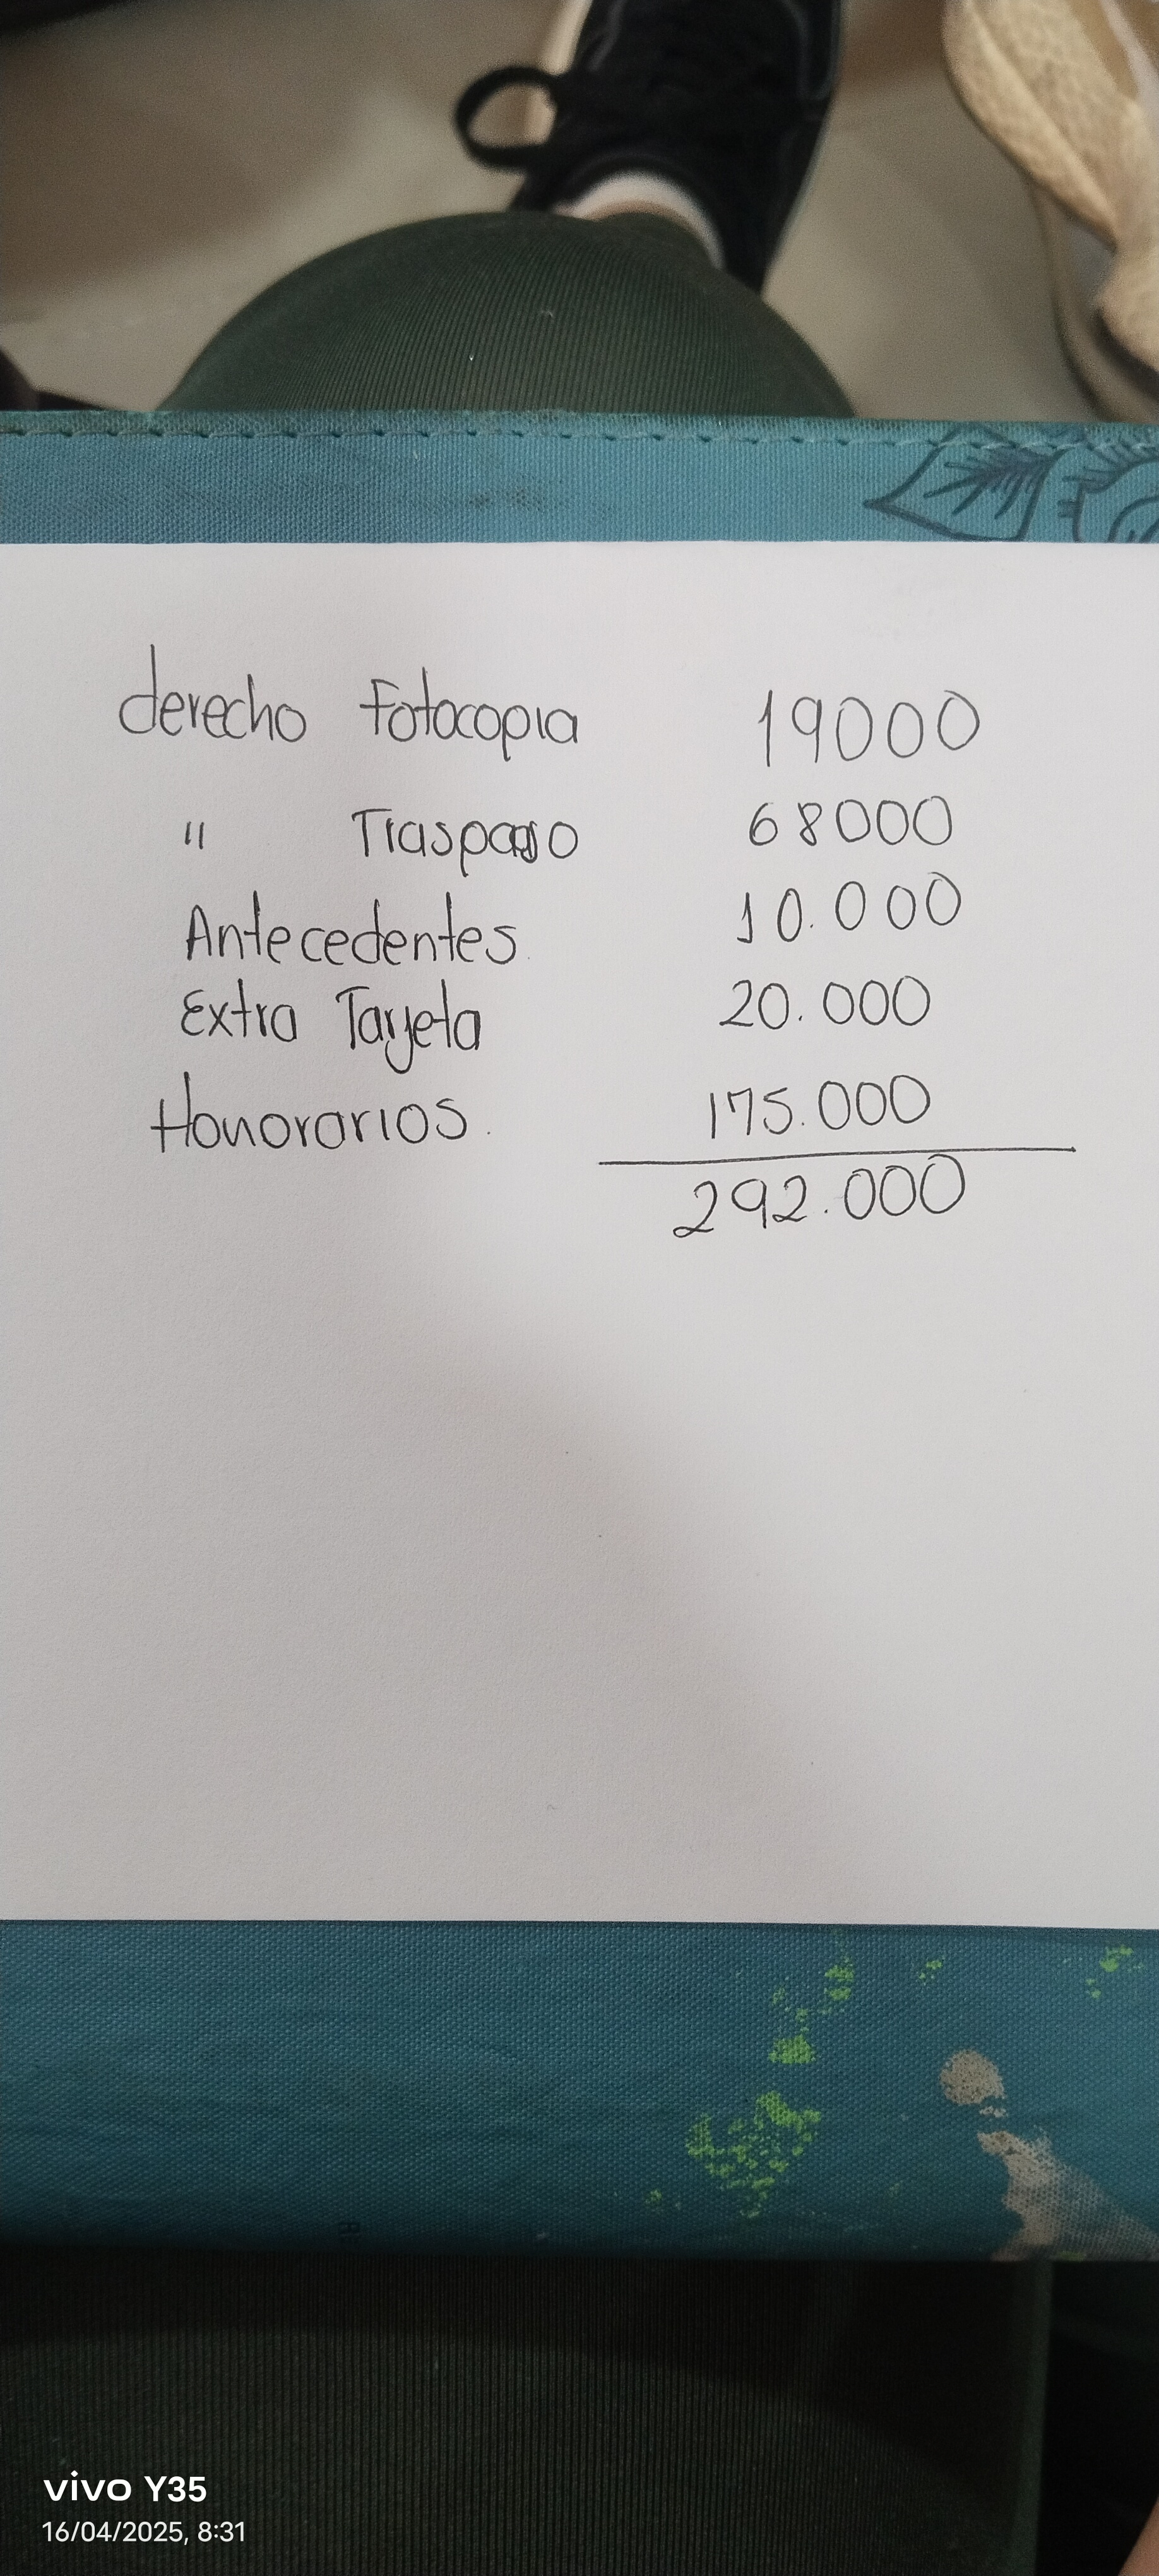 derecho fotocopia 19000
" Traspaso 68000
Antecedentes. 10.000
Extra Tarjeta 20.000
Honorarios. 175.000
292.000
vivo Y35
16/04/2025, 8:31